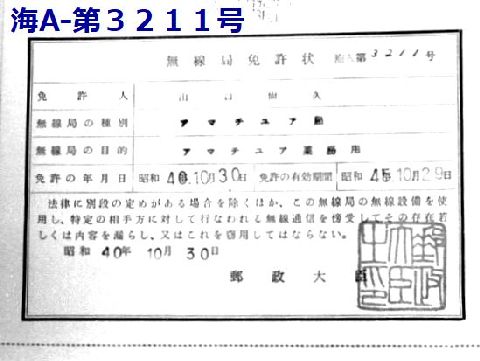 海A-第３２１１号
無線局免許状 海A第3211号
免許人 山口 久
無線局の種別 アマチュア局
無線局の目的 アマチュア業務用
免許の年月日 昭和 40.10月30日 免許の有効期間 昭和 45.10月29日
法律に別段の定めがある場合を除くほか、この無線局の無線設備を使
用し、特定の相手方に対して行なわれる無線通信を傍受してその存在若
しくは内容を漏らし、又はこれを窃用してはならない。
昭和 40年 10月 30日
郵政大臣
郵政大臣之印